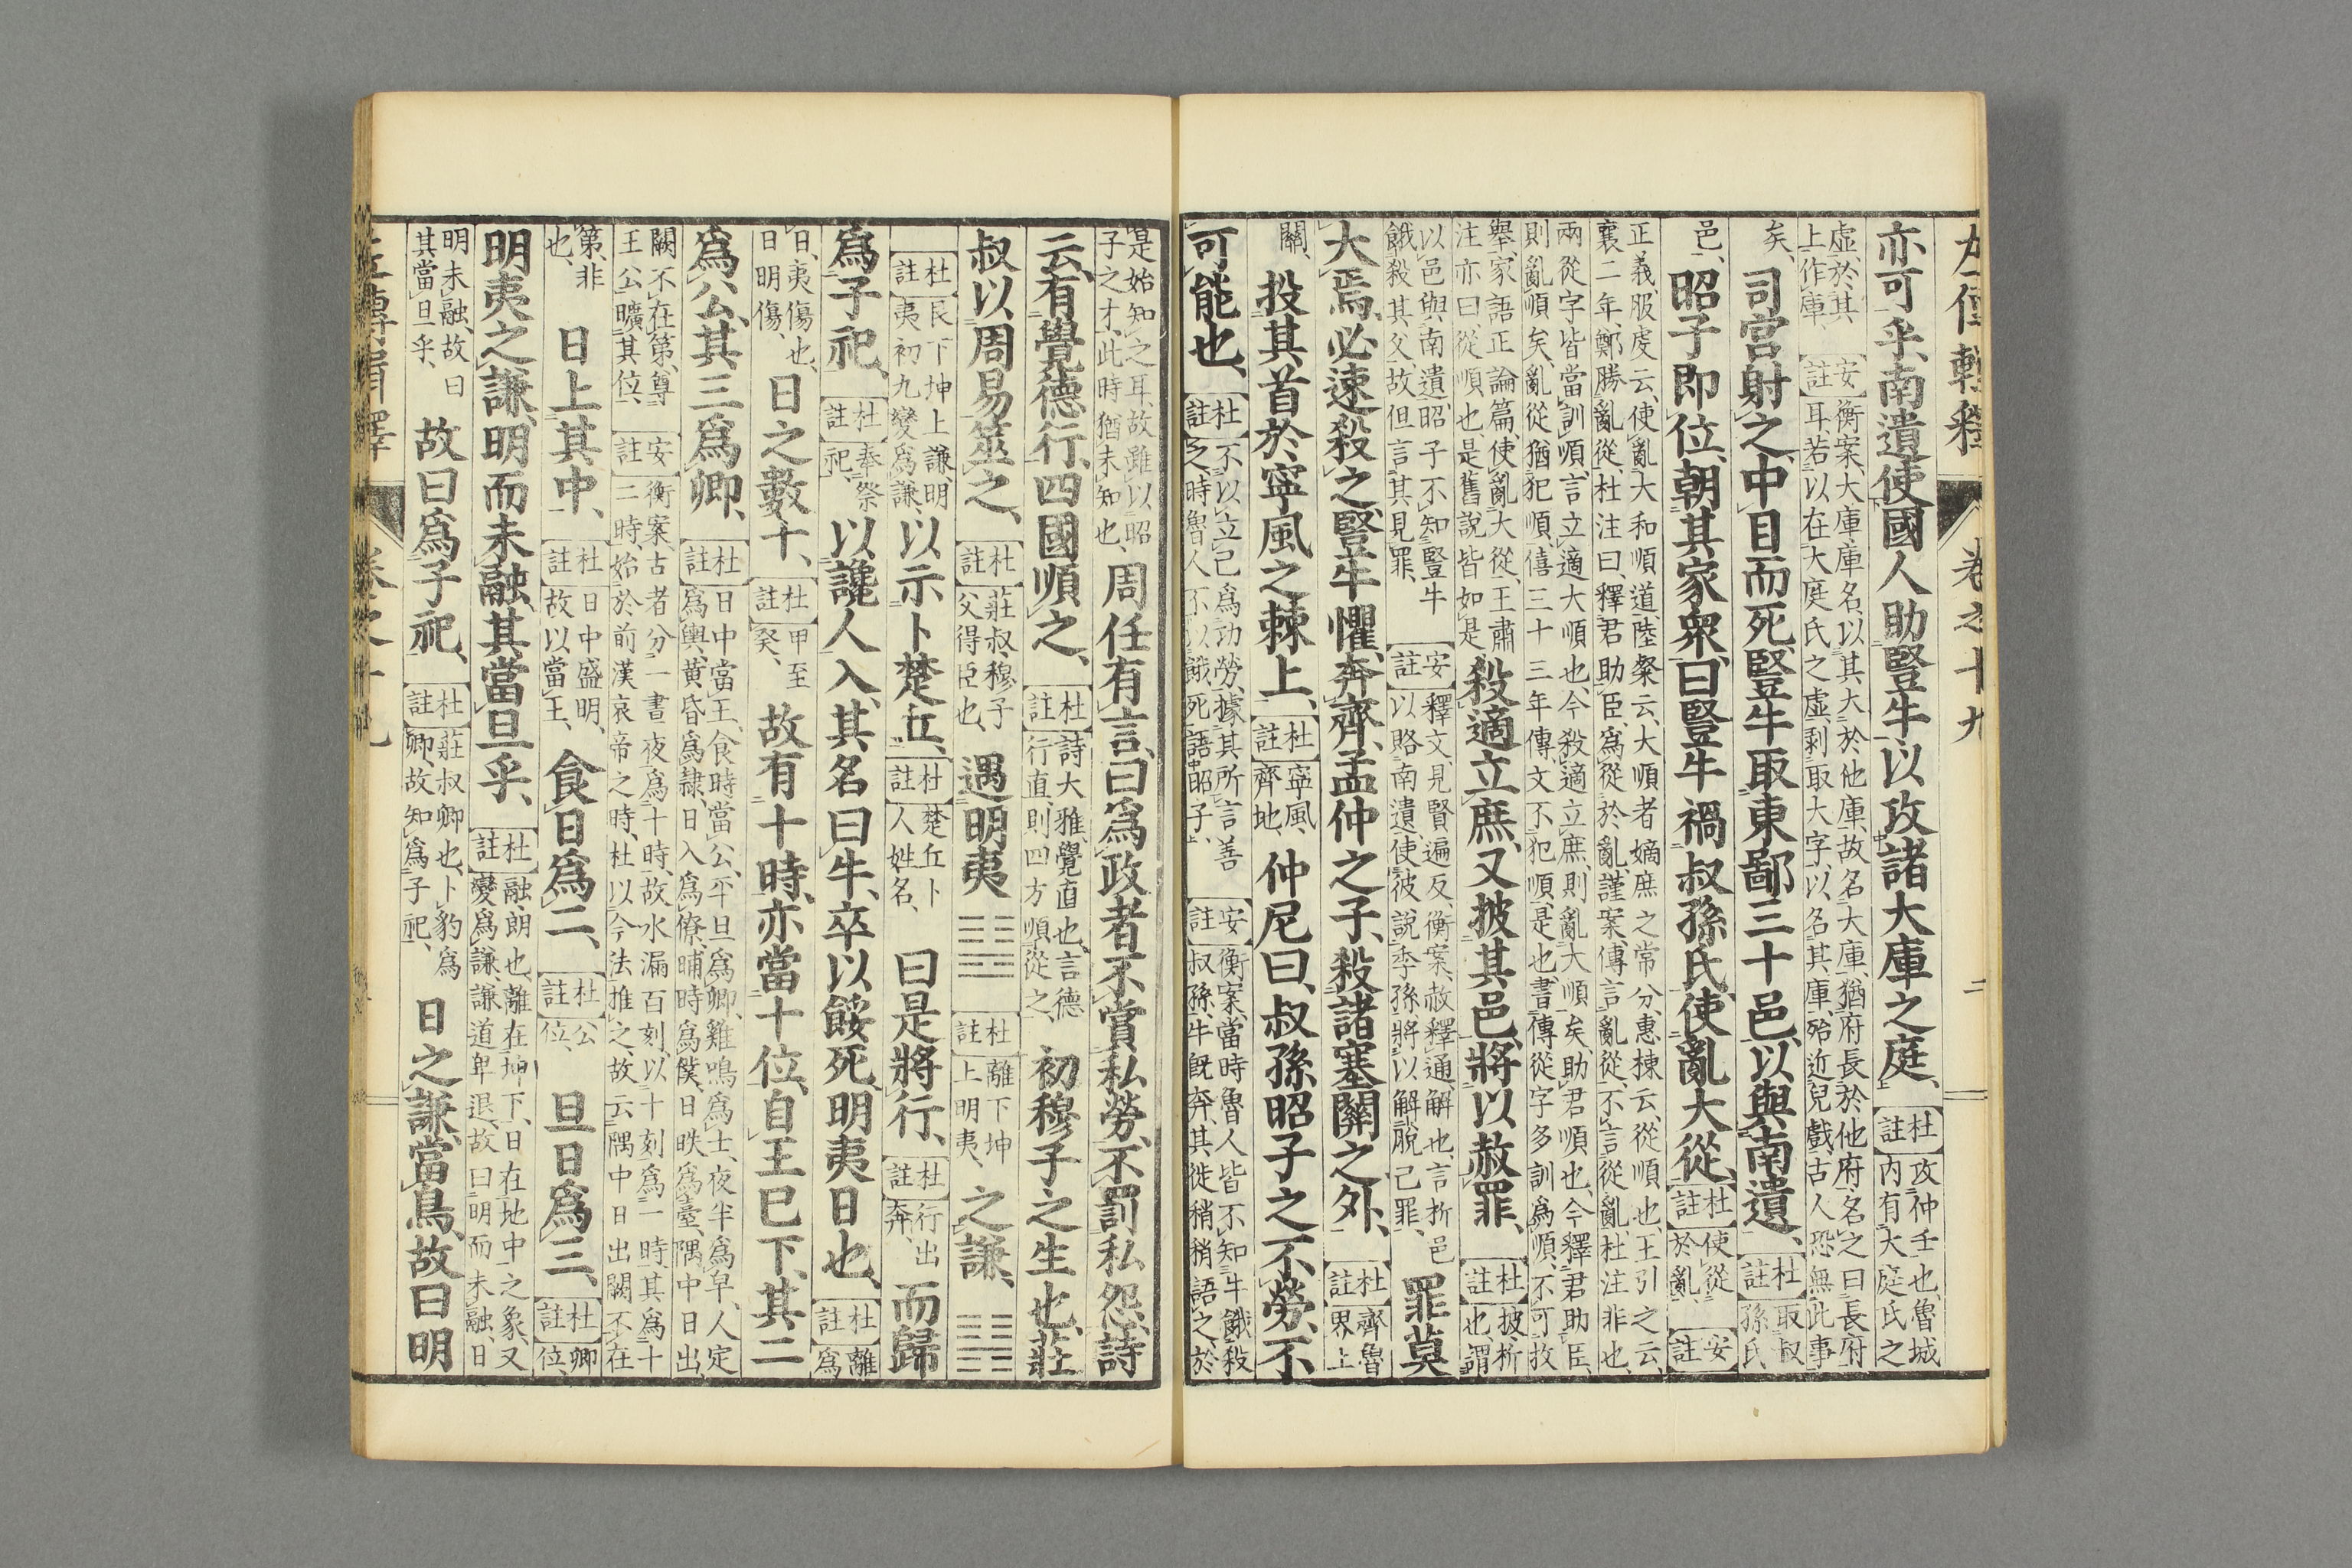 左傳輯釋 卷之十九 二
亦可乎、南遺使國人助豎牛、以攻諸大庫之庭、杜註攻仲壬也、魯城內有大庭氏之
虛、於其上作庫、安註衡案、大庫、庫名、以其大於他庫、故名大庫、猶府長於他府、名之曰長府耳、若以在大庭氏之虛、剥取大字、以名其庫、殆近兒戲、古人恐無此事
矣、司宮射之、中目而死、豎牛取東鄙三十邑、以與南遺、杜註取叔孫氏
邑、昭子即位、朝其家衆、曰豎牛禍叔孫氏、使亂大從、杜註使從於亂、安註
正義、服虔云、使亂大和順道、陸粲云、大順者嫡庶之常分、惠棟云、從順也、王引之云、襄二年、鄭勝亂從、杜注曰、釋君助臣、爲從於亂、謹案、傳言亂從、不言從亂、杜注非也、
兩從字皆當訓順、言立適大順也、今殺適立庶、則亂大順矣、助君順也、今釋君助臣、則亂順矣、亂從猶犯順、僖三十三年傳、文不犯順、是也、書傳從字多訓爲順、不可枚
舉、家語正論篇、使亂大從、王肅注亦曰、從順也、是舊說皆如是、殺適立庶、又披其邑、將以赦罪、杜註披析也、謂
以邑與南遺、昭子不知豎牛餓殺其父、故但言其見罪、安註釋文、見賢遍反、衡案、赦釋通、解也、言折邑以賂南遺、使彼說季孫、將以解脫己罪、罪莫
大焉、必速殺之、豎牛懼、奔齊、孟仲之子、殺諸塞關之外、杜註齊魯界上
關、投其首於寧風之棘上、杜註寧風、齊地、仲尼曰、叔孫昭子之不勞、不
可能也、杜註不以立己爲功勞、據其所言善之、時魯人不以餓死語昭子、安註衡案、當時魯人皆不知牛餓殺叔孫、牛既奔、其徒稍稍語之、於
是始知之耳、故雖以昭子之才、此時猶未知也、周任有言、曰爲政者不賞私勞、不罰私怨、詩
云、有覺德行、四國順之、杜註詩大雅、覺直也、言德行直則四方順從之、初穆子之生也、莊
叔以周易筮之、杜註莊叔、穆子父得臣也、遇明夷䷣杜註離下坤上明夷、之謙、䷎
杜註艮下坤上謙、明夷初九變爲謙、以示卜楚丘、杜註楚丘卜人姓名、曰是將行、杜註行出奔、而歸
爲子祀、杜註奉祭祀、以讒人入、其名曰牛、卒以餒死、明夷日也、杜註離爲
日、夷傷也、日明傷、日之數十、杜註甲至癸、故有十時、亦當十位、自王已下、其二
爲公、其三爲卿、杜註日中當王、食時當公、平旦爲卿、雞鳴爲士、夜半爲皁、人定爲輿、黃昏爲隸、日入爲僚、晡時爲僕、日昳爲臺、隅中日出、
闕不在第、尊王公曠其位、安註衡案、古者分一晝夜爲十時、故水漏百刻、以十刻爲一時、其爲十二時、始於前漢哀帝之時、杜以今法推之、故云隅中日出闕不在
第、非也、日上其中、杜註日中盛明、故以當王、食日爲二、杜註公位、旦日爲三、杜註卿位、
明夷之謙、明而未融、其當旦乎、杜註融、朗也、離在坤下、日在地中之象、又變爲謙、謙道卑退、故曰明而未融、日
明未融、故曰其當旦乎、故曰爲子祀、杜註莊叔卿也、卜豹爲卿、故知爲子祀、日之謙當鳥、故曰明